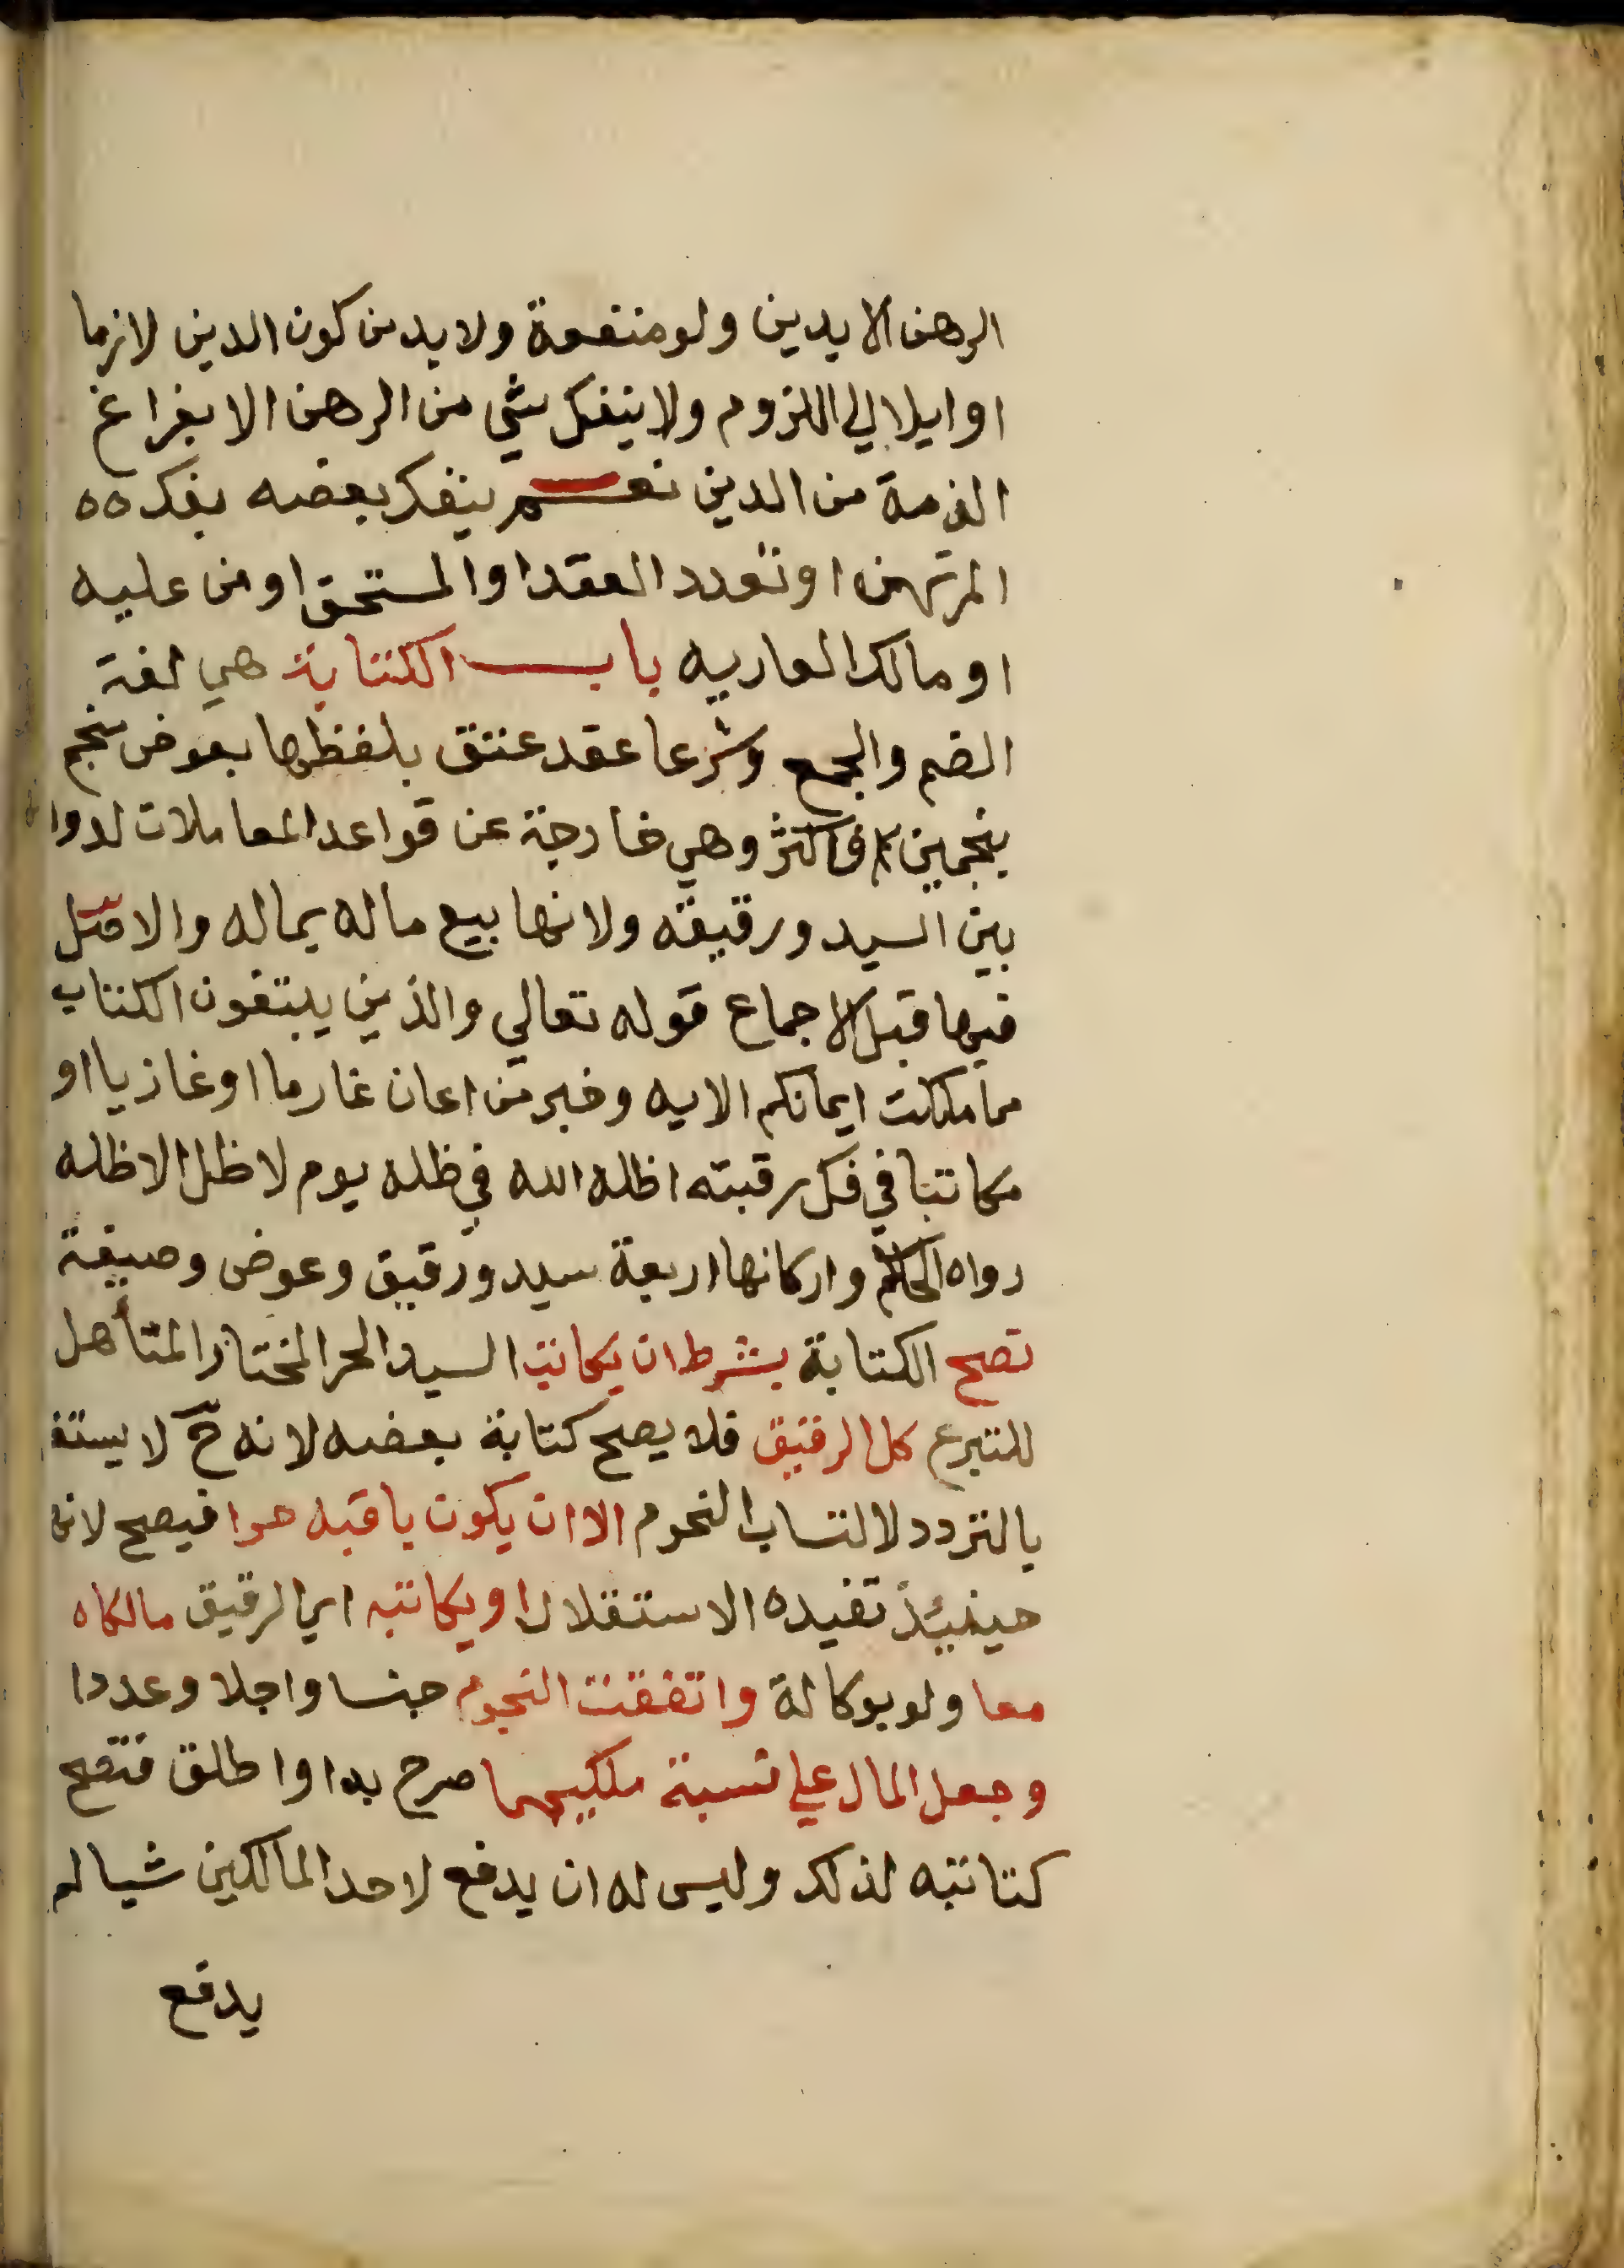 الرهن الا بدين ولو منفعة ولا بد من كون الدين لازما
او ايلا الي اللزوم ولا ينفك شي من الرهن الا بفراغ
الذمة من الدين نعم ينفك بعضه بفك ٥٥
المرتهن او تعدد العقد او المستحق او من عليه
او مالك العاريه باب الكتابة هي لغة
الضم والجمع وشرعا عقد عتق بلفظها بعوض منجم
بنجمين فاكثر وهي خارجة عن قواعد المعاملات لدوا
بين السيد ورقيقه ولانها بيع ماله بماله والاصل
فيها قبل الاجماع قوله تعالي والذين يبتغون الكتاب
مما ملكت ايمانكم الايه وخبر من اعان غارما او غازيا او
مكاتبا في فك رقبته اظله الله في ظله يوم لا ظل الا ظله
رواه الحاكم واركانها اربعة سيد ورقيق وعوض وصيغة
تصح الكتابة بشرط ان يكاتب السيد الحر المختار المتأهل
للتبرع كل الرقيق فلا يصح كتابة بعضه لانه ح لا يستقـ
بالتردد لاكتساب النجوم الا ان يكون باقيه حرا فيصح لانها
حينئذ تفيده الاستقلال او يكاتبه اي الرقيق مالكاه
معا ولو بوكالة واتفقت النجوم جنسا واجلا وعددا
وجعل المال علي نسبة ملكيهما صرح به او اطلق فتصح
كتابته لذلك وليس له ان يدفع لاحد المالكين شيا لم
يدفع